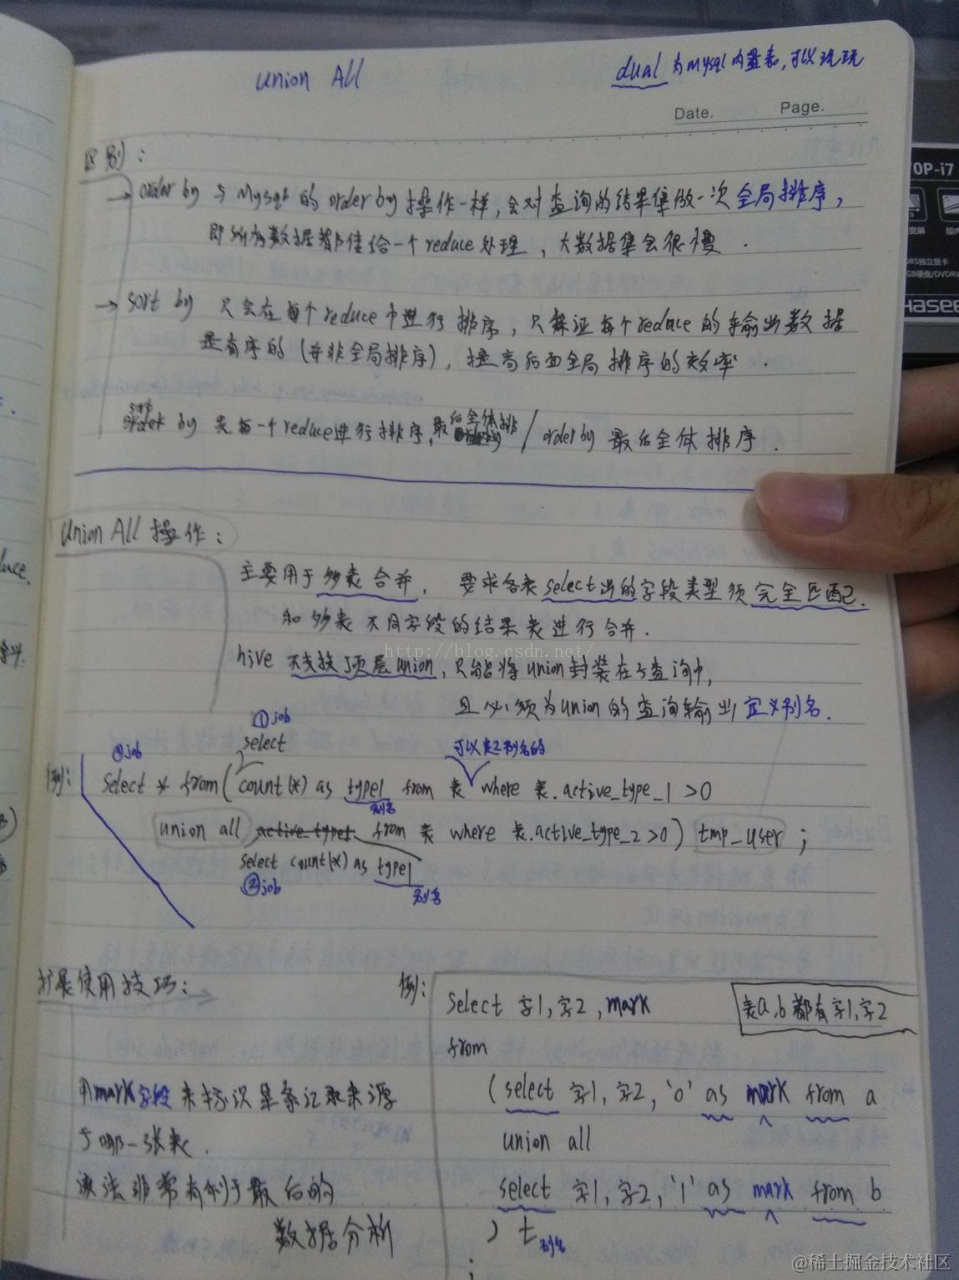 union All
dual 为mysql内置表,可以玩玩
Date. Page.
区别:
→ order by 与Mysql的order by操作一样,会对查询的结果集做一次全局排序,
即所有数据都传给一个reduce处理,大数据集会很慢.
→ sort by 只会在每个reduce中进行排序,只保证每个reduce的输出数据
是有序的(并非全局排序),提高后面全局排序的效率.
sort
by 先每一个reduce进行排序,最后全体排 / order by 最后全体排序.
union All 操作:
主要用于多表合并, 要求各表select出的字段类型须完全匹配.
和多表不同字段的结果表进行合并.
http://blog.csdn.net/
hive 不支持顶层union,只能将union封装在子查询中,
且必须为union的查询输出定义别名.
① job
③ job select 可以是表别名的
例: select * from( count(*) as type1 from 表 where 表.active_type_1 >0
别名
union all active_type from 表 where 表.active_type_2 >0) tmp_user ;
select count(*) as type1
② job 别名
扩展使用技巧:
用mark字段来标识某条记录来源
于哪一张表.
该法非常有利于最后的
数据分析
例:
select 字1,字2,mark
表a,b都有字1,字2
from
(select 字1,字2,'0' as mark from a
union all
select 字1,字2,'1' as mark from b
) t 别名
;
0P-i7
HASEE
@稀土掘金技术社区